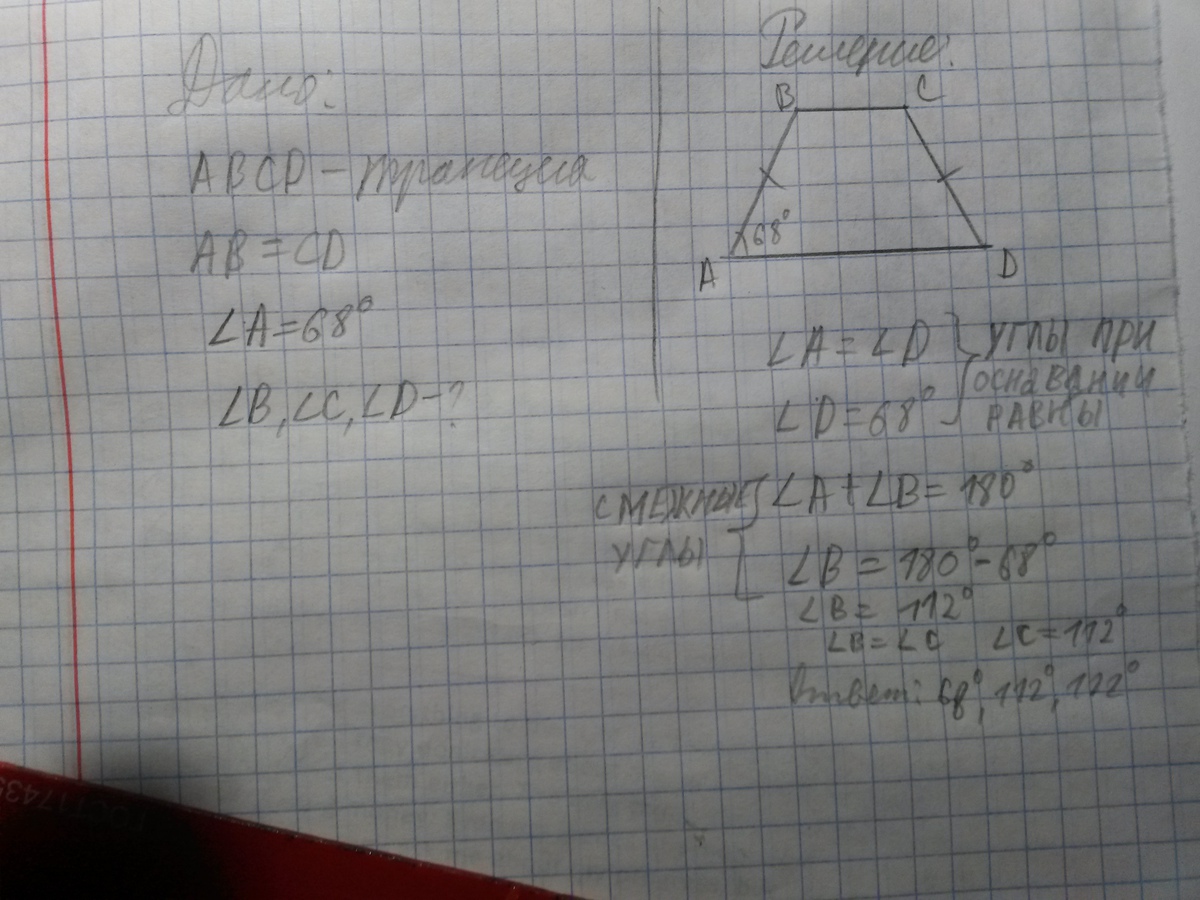 Дано:
ABCD – трапеция
AB = CD
∠A = 68°
∠B, ∠C, ∠D – ?
Решение:
B
C
68°
A
D
∠A = ∠D } УГЛЫ ПРИ
ОСНОВАНИИ
∠D = 68° РАВНЫ
СМЕЖНЫЕ ∠A + ∠B = 180°
УГЛЫ
∠B = 180° – 68°
∠B = 112°
∠B = ∠C ∠C = 112°
Ответ: 68°, 112°, 112°
ГОСТ 17435